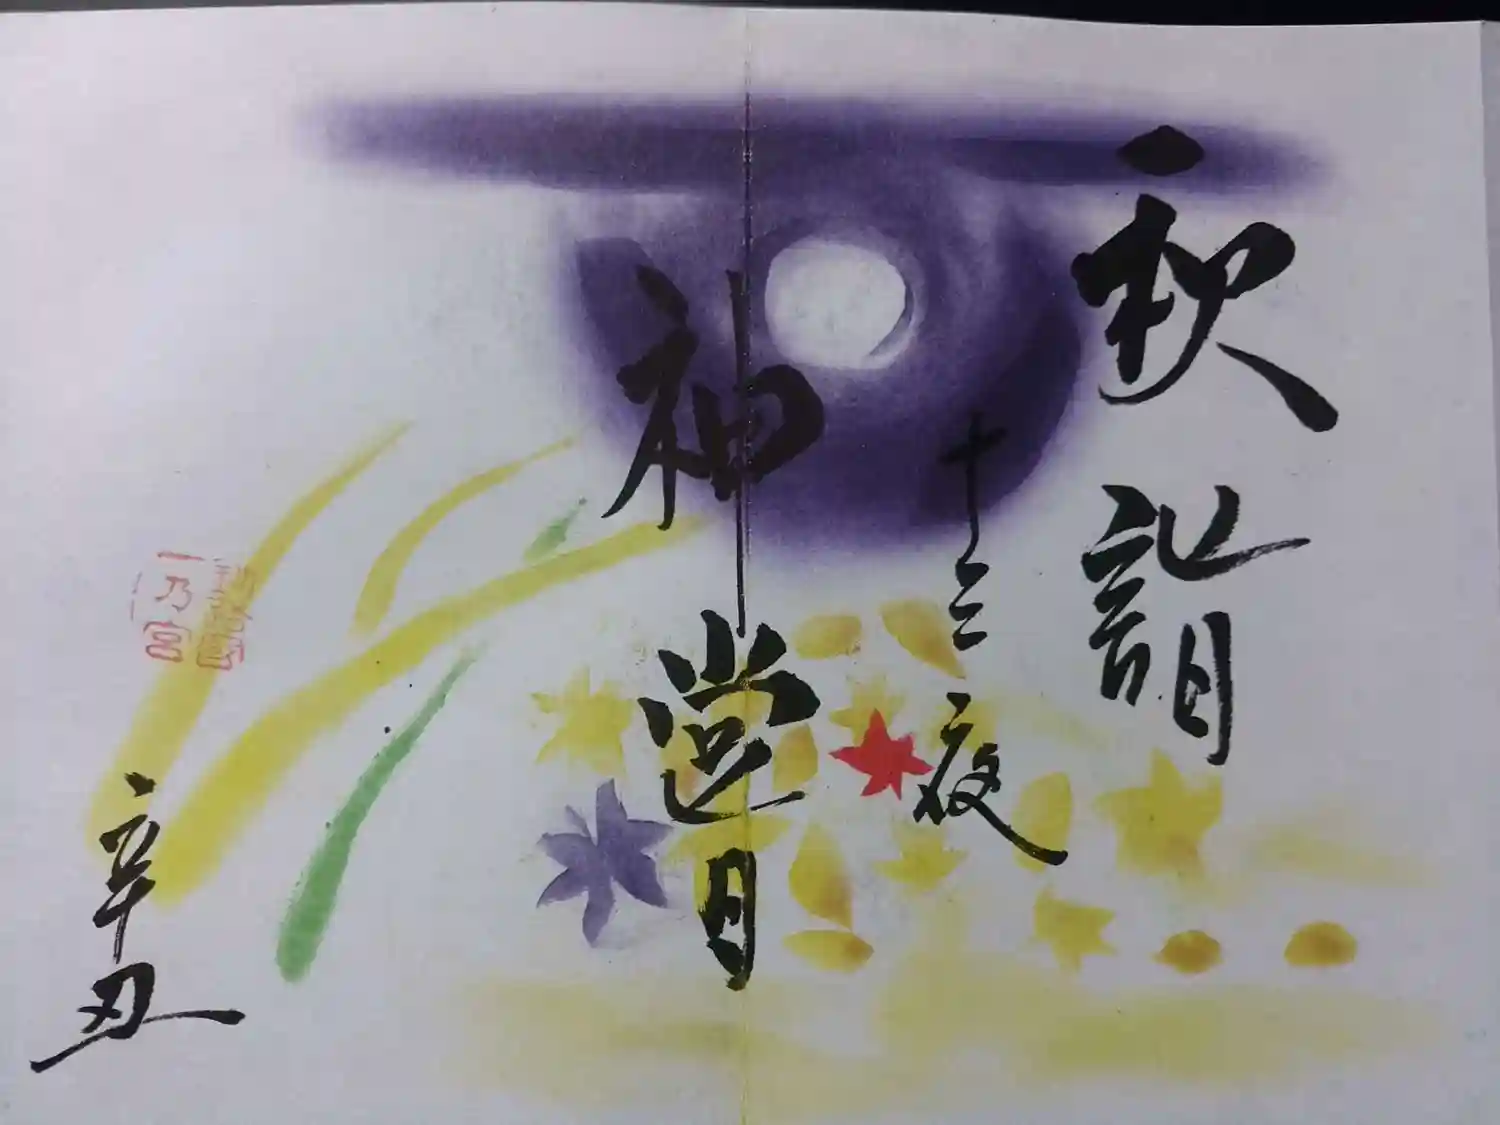 秋詣
十三夜
神嘗
辛丑
一乃宮